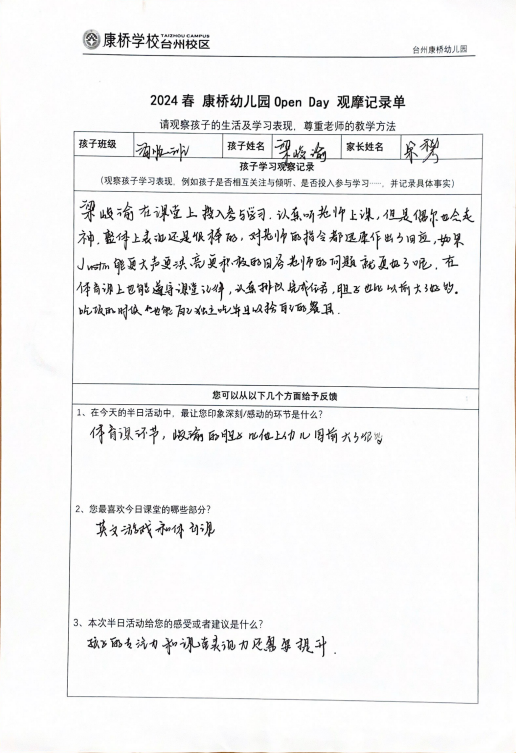 康桥学校 TAIZHOU CAMPUS 台州校区
台州康桥幼儿园
2024春 康桥幼儿园Open Day 观摩记录单
请观察孩子的生活及学习表现，尊重老师的教学方法
孩子班级 孩子姓名 梁峻渝 家长姓名
孩子学习观察记录
（观察孩子学习表现，例如孩子是否相互关注与倾听、是否投入参与学习……，并记录具体事实）
梁峻渝在课堂上投入参与学习，认真听老师上课，但是偶尔也会走
神，整体上表现还是很棒的，对老师的指令都迅速作出了回应，如果
Justin能更大声更洪亮更积极的回答老师的问题就更好了呢。在
体育课上也能遵守课堂纪律，认真排队完成任务，胆子也比以前大了好多。
吃饭的时候也能自己独立吃并且收拾自己的餐具.
您可以从以下几个方面给予反馈
1、在今天的半日活动中，最让您印象深刻/感动的环节是什么？
体育课环节，峻渝的胆子比他上幼儿园前大了很多
2、您最喜欢今日课堂的哪些部分？
英文游戏和体育课
3、本次半日活动给您的感受或者建议是什么？
孩子的专注力和课堂灵活力还需要提升.